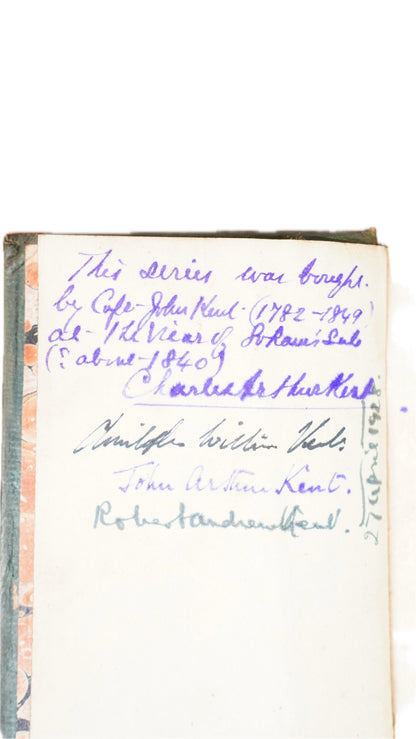 This series was bought.
by Capt. John Kent. (1782-1849)
at - The Vicar of Sale
(? about - 1840)
Charles Arthur Kent
William Kent.
John Arthur Kent.
Robert Andrew Kent.
27 April 1928.